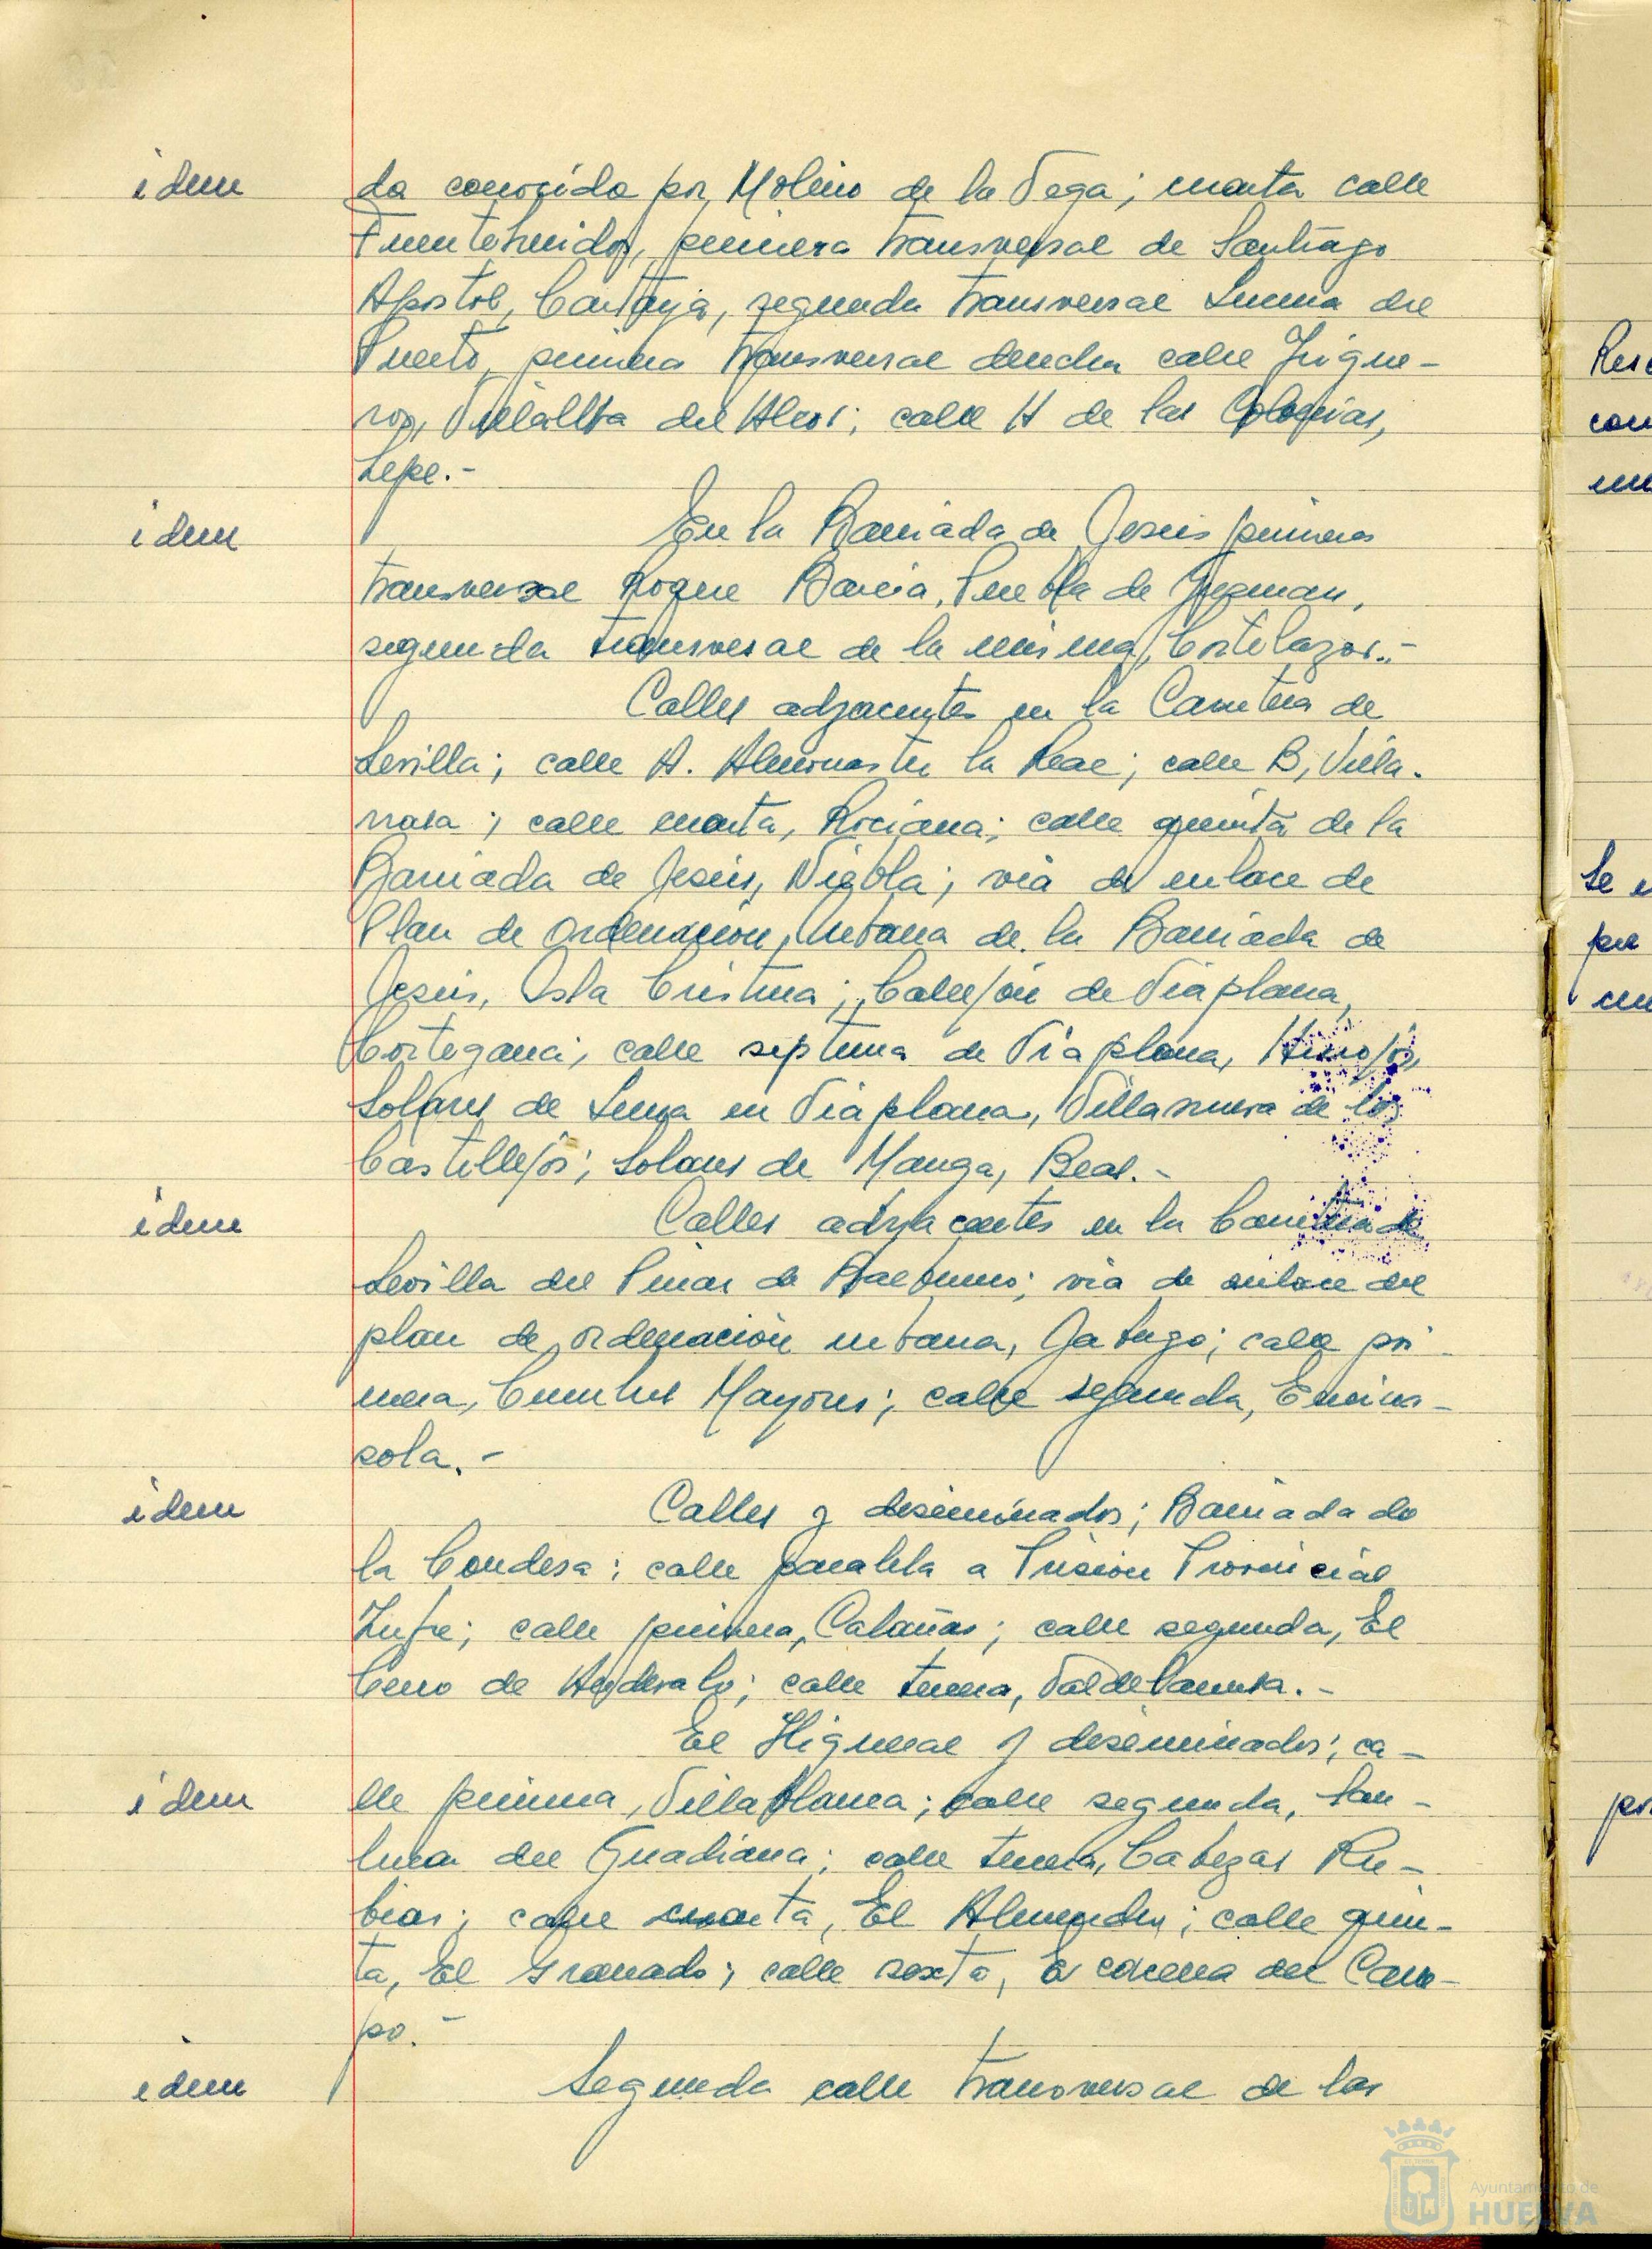 idem
da conocida por Molino de la Vega; cuarta calle
Fuenteheridos, primera transversal de Santiago
Apostol, Cartaya, segunda transversal Lucena del
Puerto, primera transversal derecha calle Trigue-
ros, Villalba del Alcor; calle H de las Colonias,
Lepe.-
idem
En la Barriada de Jesús primera
transversal Roque Barcia, Puebla de Guzman,
segunda transversal de la misma, Cortelazor.-
Calles adyacentes en la Carretera de
Sevilla; calle A. Almonaster la Real; calle B, Villa-
rrasa; calle cuarta, Rociana; calle quinta de la
Barriada de Jesús, Niebla; via de enlace de
Plan de Ordenación Urbana de la Barriada de
Jesús, Isla Cristina; Callejón de Viaplana,
Cortegana; calle septima de Viaplana, Hinojos,
Solares de en Viaplana, Villanueva de los
Castillejos; Solares de Manga, Beas.-
idem
Calles adyacentes en la Carretera de
Sevilla del Pinar de Balbueno; via de enlace del
plan de ordenación urbana, Jabugo; calle pri-
mera, Cumbres Mayores; calle segunda, Encina-
sola.-
idem
Calles y diseminados; Barriada de
la Condesa; calle paralela a Prision Provincial
Zufre; calle primera, Calañas; calle segunda, El
Cerro de Andevalo; calle tercera, Valdelamusa.-
El Higueral y diseminados; ca-
idem
lle primera, Villablanca; calle segunda, San-
lucar del Guadiana; calle tercera, Cabezas Ru-
bias; calle cuarta, El Almendro; calle quin-
ta, El Granado; calle sexta, Escacena del Cam-
po.-
idem
Segunda calle transversal de las
Se
Ayuntamiento de
HUELVA